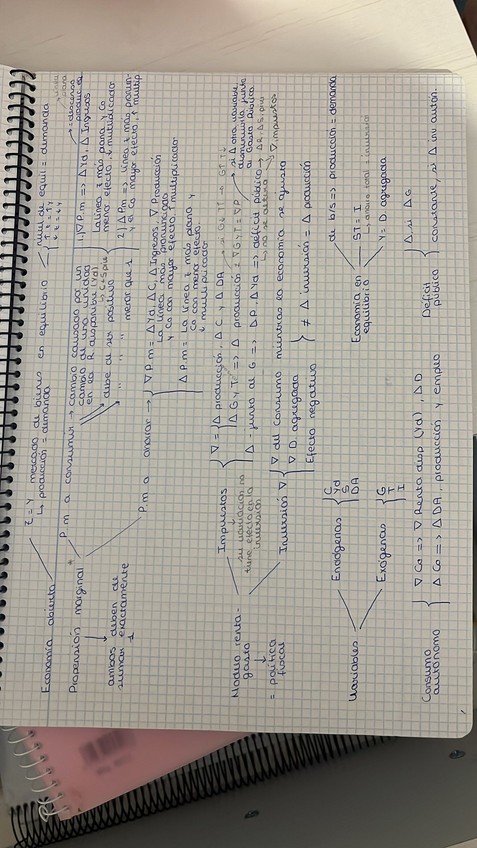 Economía abierta
z = Y mercado de bienes en equilibrio
↳ producción = demanda
nivel de equil = demanda
Propensión marginal
ambas deben de sumar exactamente 1
p m a consumir → cambio causado por un
cambio de una unidad
en la R disponible (Yd)
debe de ser positivo
" " " menor que 1
1. ∇ P.m => Δ Yd, Δ Ingresos
La línea z más plana y Co
menor efecto, ↓ multiplicador
2) Δ Pm => línea z más
y el Co mayor efecto, ↑ multip
p m a ahorrar →
∇ P.m = Δ Yd, Δ C, Δ Ingresos, ∇ Producción
La línea más pronunciada
y Co con mayor efecto, ↑ multiplicador
Δ P.m = La línea z más plana y
Co con menor efecto
↓ multiplicador
Modelo renta-
gasto
↓
= política
fiscal
Impuestos
↓
su variación no
tiene efecto en la
inversión
∇ = Δ producción, Δ C y Δ DA
Δ G y T => Δ producción
Δ + junto al G => Δ A Δ Yd => déficit público
∇ impuestos
Inversión ∇
∇ del consumo mientras la economía se ajusta
∇ D. agregada
Efecto negativo
≠ Δ inversión = Δ producción
Variables
Endógenas
C
Yd
S
DA
Exógenas
G
T
I
Economía en
equilibrio
de b/s => producción = demanda
ST = I
↳ ahorro total = inversión
Y = D. agregada
Consumo
autónomo
∇ Co => ∇ Renta disp (Yd), Δ D
Δ Co => Δ DA, producción y empleo
Déficit
público
Δ si Δ G
constante, si Δ inv autón.